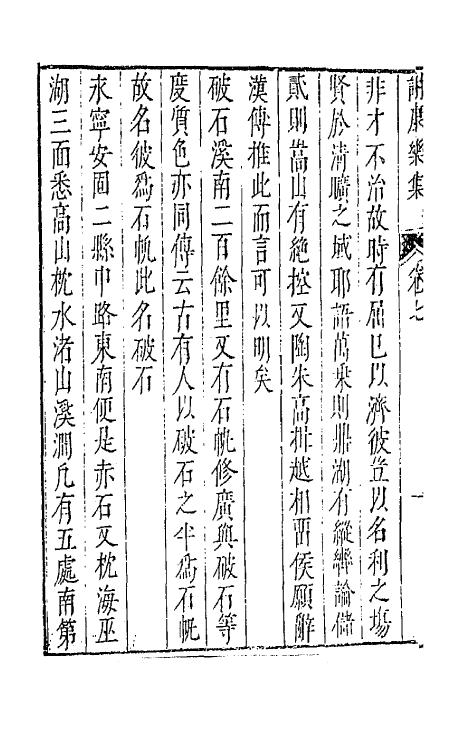 謝康樂集 卷七 一
非才不治故時有屈已以濟彼豈以名利之場
賢於清曠之域耶語萬乗則鼎湖有縱轡論儲
貳則嵩山有絶控又陶朱高揖越相畱侯願辭
漢傅推此而言可以明矣
破石溪南二百餘里又有石帆修廣與破石等
度質色亦同傳云古有人以破石之半爲石帆
故名彼爲石帆此名破石
永寧安固二縣中路東南便是赤石又枕海巫
湖三面悉高山枕水渚山溪澗凡有五處南第